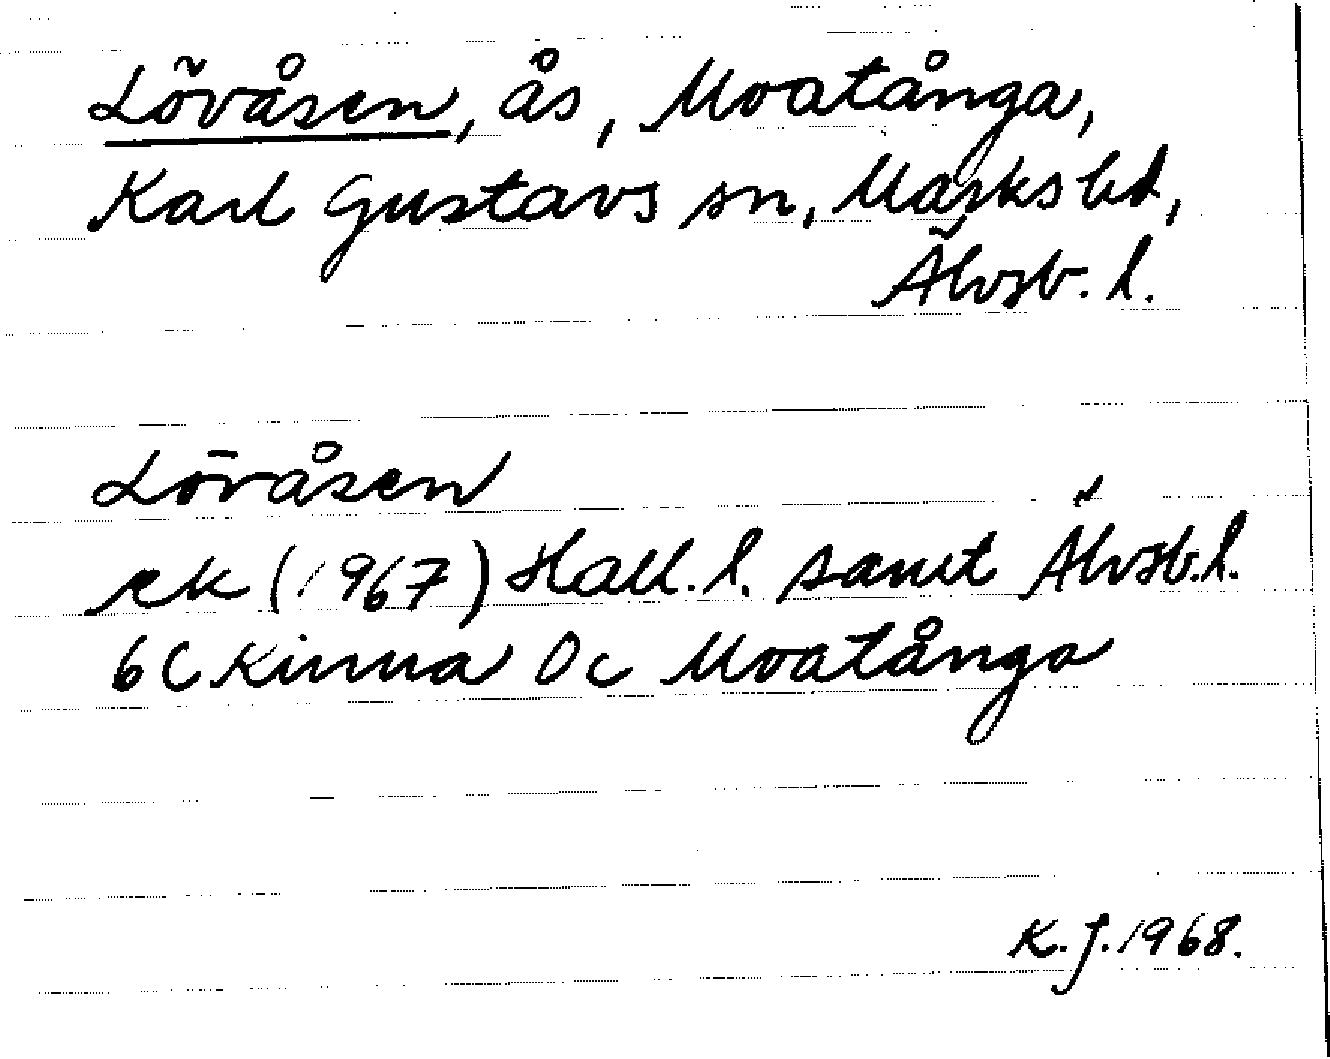 Lövåsen, ås, Moatånga,
Karl Gustavs sn, Marks hd,
Älvsb. l.
Lövåsen
ek (1967) Hall. l. samt Älvsb. l.
6C Kinna 0c Moatånga
K. J. 1968.